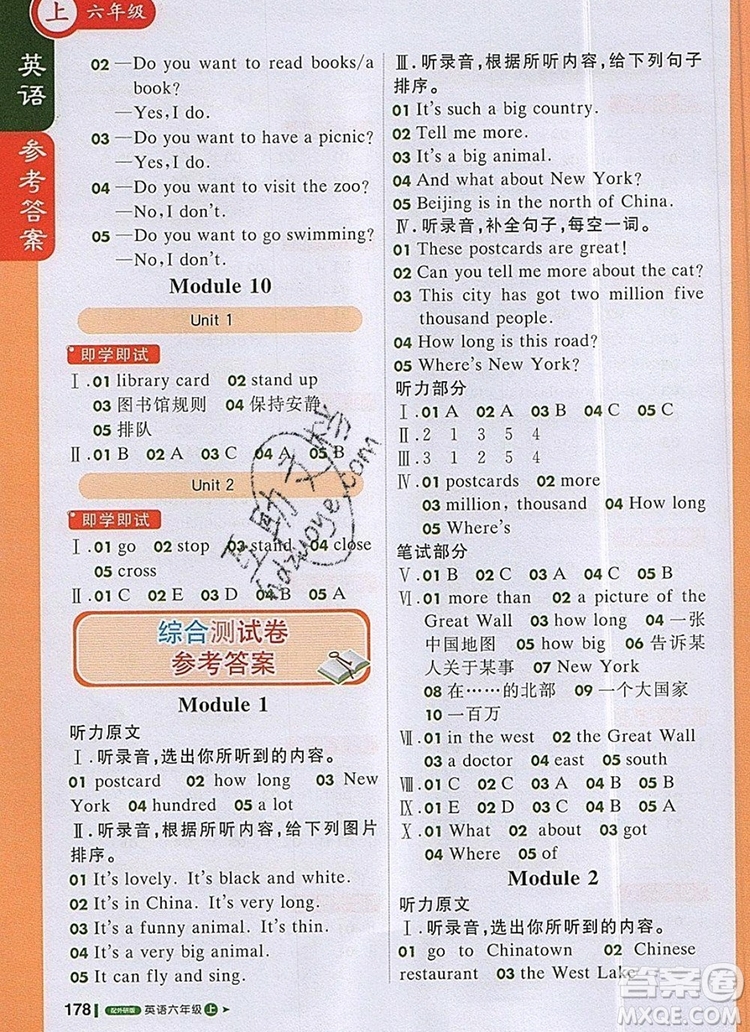 上 六年级
英语
参考答案
02 —Do you want to read books/a
book?
—Yes, I do.
03 —Do you want to have a picnic?
—Yes, I do.
04 —Do you want to visit the zoo?
—No, I don't.
05 —Do you want to go swimming?
—No, I don't.
Module 10
Unit 1
即学即试
Ⅰ. 01 library card 02 stand up
03 图书馆规则 04 保持安静
05 排队
Ⅱ. 01 B 02 A 03 C 04 A 05 B
Unit 2
即学即试
Ⅰ. 01 go 02 stop 03 stand 04 close
05 cross
Ⅱ. 01 C 02 E 03 D 04 B 05 A
综合测试卷
参考答案
Module 1
听力原文
Ⅰ. 听录音,选出你所听到的内容。
01 postcard 02 how long 03 New
York 04 hundred 05 a lot
Ⅱ. 听录音,根据所听内容,给下列图片
排序。
01 It's lovely. It's black and white.
02 It's in China. It's very long.
03 It's a funny animal. It's thin.
04 It's a very big animal.
05 It can fly and sing.
178 配外研版 英语六年级 上
Ⅲ. 听录音,根据所听内容,给下列句子
排序。
01 It's such a big country.
02 Tell me more.
03 It's a big animal.
04 And what about New York?
05 Beijing is in the north of China.
Ⅳ. 听录音,补全句子,每空一词。
01 These postcards are great!
02 Can you tell me more about the cat?
03 This city has got two million five
thousand people.
04 How long is this road?
05 Where's New York?
听力部分
Ⅰ. 01 A 02 A 03 C 04 B 05 C
Ⅱ. 2 1 3 5 4
Ⅲ. 3 1 2 5 4
Ⅳ. 01 postcards 02 more
03 million, thousand 04 How long
05 Where's
笔试部分
Ⅴ. 01 B 02 C 03 A 04 C 05 B
Ⅵ. 01 more than 02 a picture of the
Great Wall 03 how long 04 一张
中国地图 05 how big 06 告诉某
人关于某事 07 New York
08 在……的北部 09 一个大国家
10 一百万
Ⅶ. 01 in the west 02 the Great Wall
03 a doctor 04 east 05 south
Ⅷ. 01 C 02 C 03 A 04 B 05 C
Ⅸ. 01 E 02 D 03 A 04 B 05 C
Ⅹ. 01 What 02 about 03 got
04 Where 05 of
Module 2
听力原文
Ⅰ. 听录音,选出你所听到的内容。
01 go to Chinatown 02 Chinese
restaurant 03 the West Lake
互助文学
hdzuoye.com
答案圈
MXQE.COM